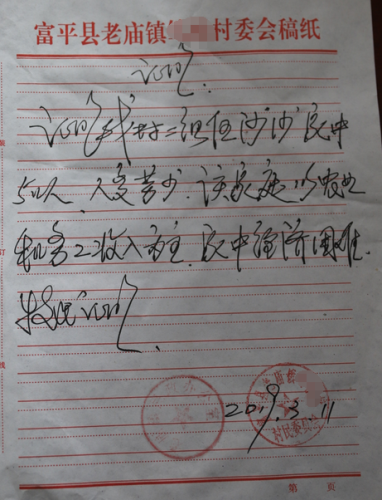 富平县老庙镇 村委会稿纸
证明
证明我村二组任沙沙家中
5口人、人多苦少、该家庭以农业
和务工收入为主,家中经济困难.
特此证明
2019.3.11
村民委员会
第 页
订
线